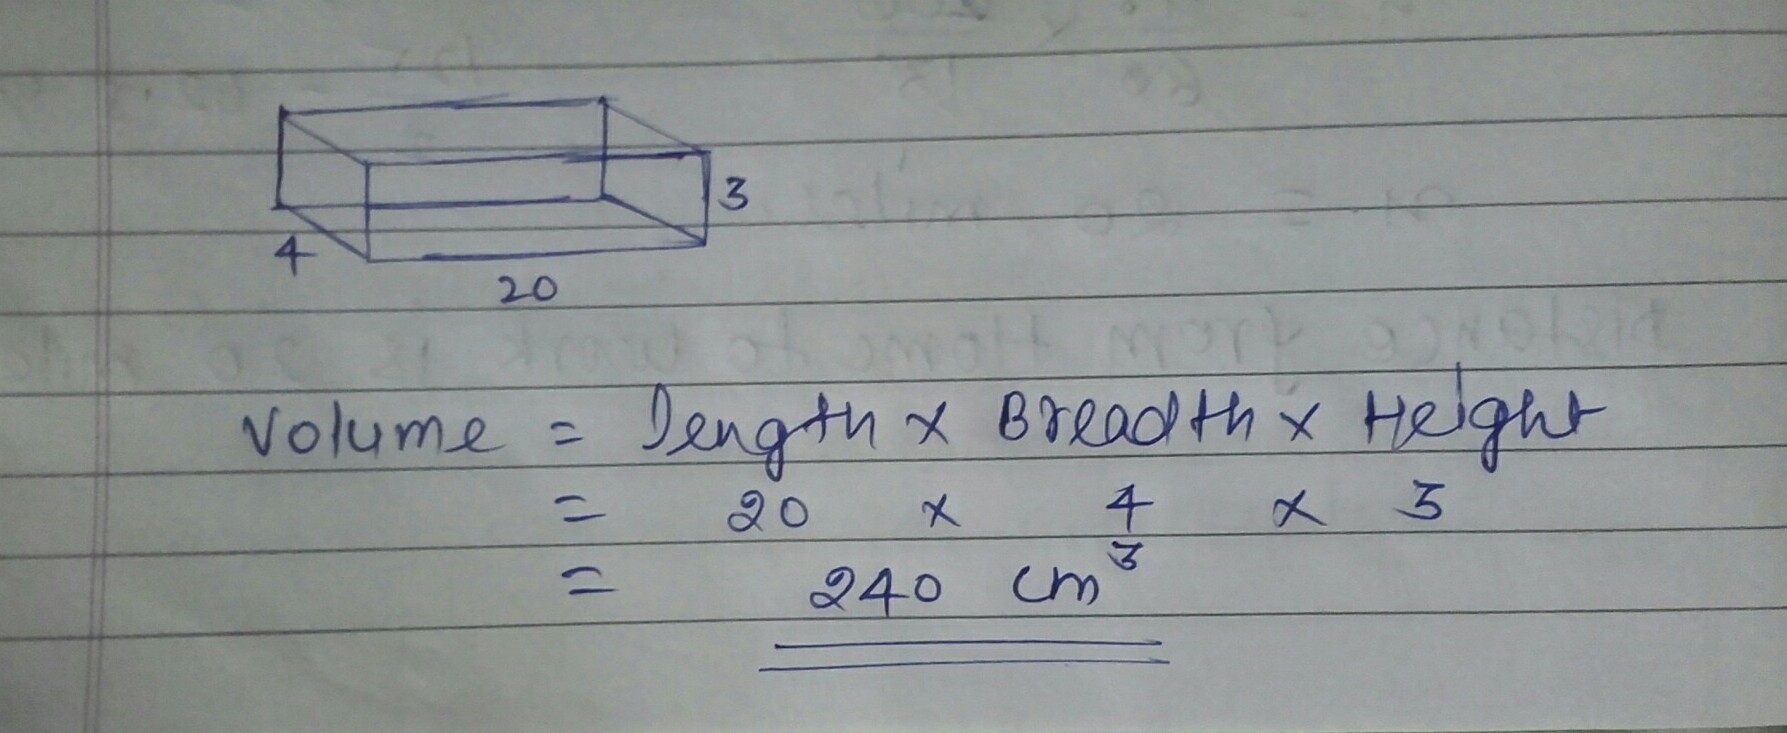 3
4
20
Volume = Length x Breadth x Height
= 20 x 4 x 3
= 240 cm³